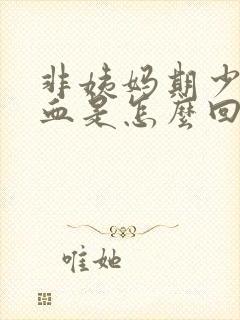 非姨妈期少
血是怎麼回
唯她